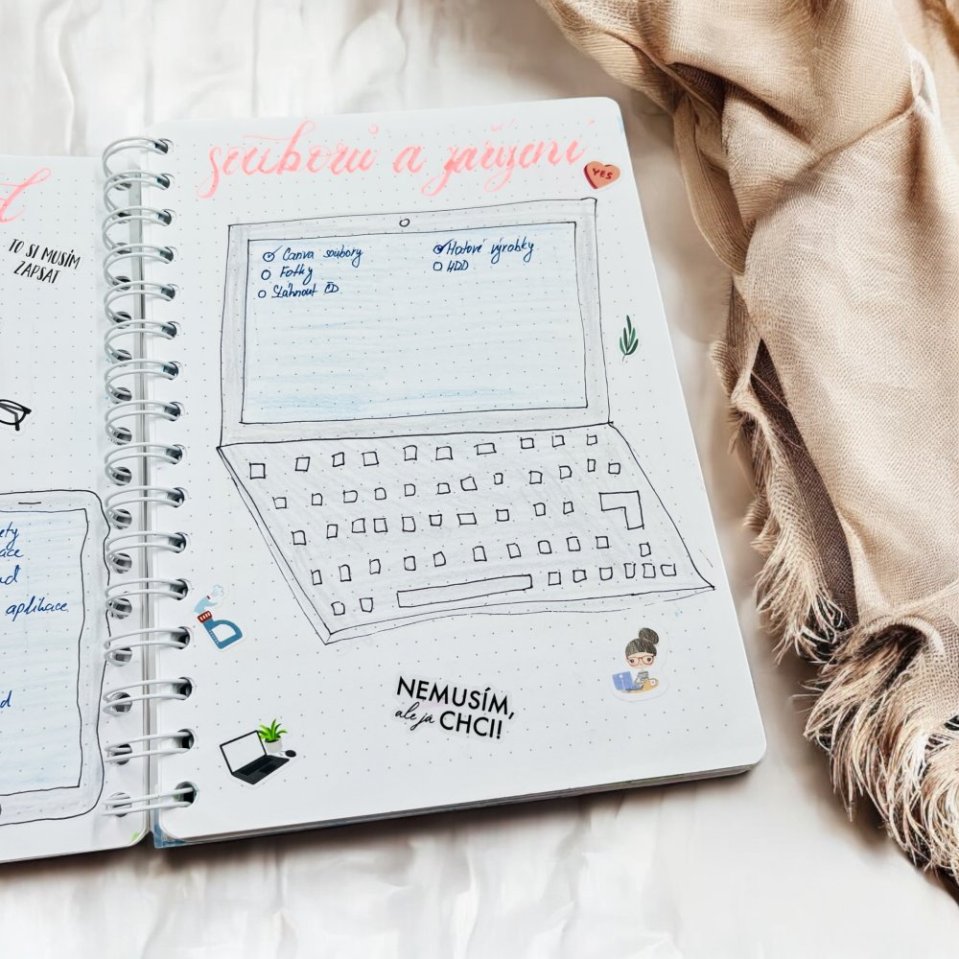 TO SI MUSÍM
ZAPSAT
aplikace
souborů a zařízení
YES
Canva soubory
Fotky
Stáhnout ČD
Hotové výrobky
HDD
NEMUSÍM,
ale já CHCI!